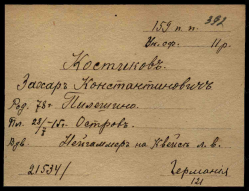 159 п.п. 392
Ун.оф. IIр.
Костиковъ
Захаръ Константиновичъ
Род. 78г. Пилешино.
Пл. -15г. Островъ.
Нейгаммеръ на Квейсѣ л.в.
21534/ Германія
121